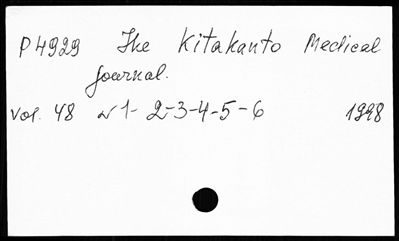 P4929 The Kitakanto Medical
Journal.
vol. 48 N 1-2-3-4-5-6 1998